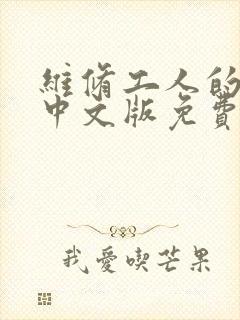 維脩工人的
中文版免費
我愛喫芒果